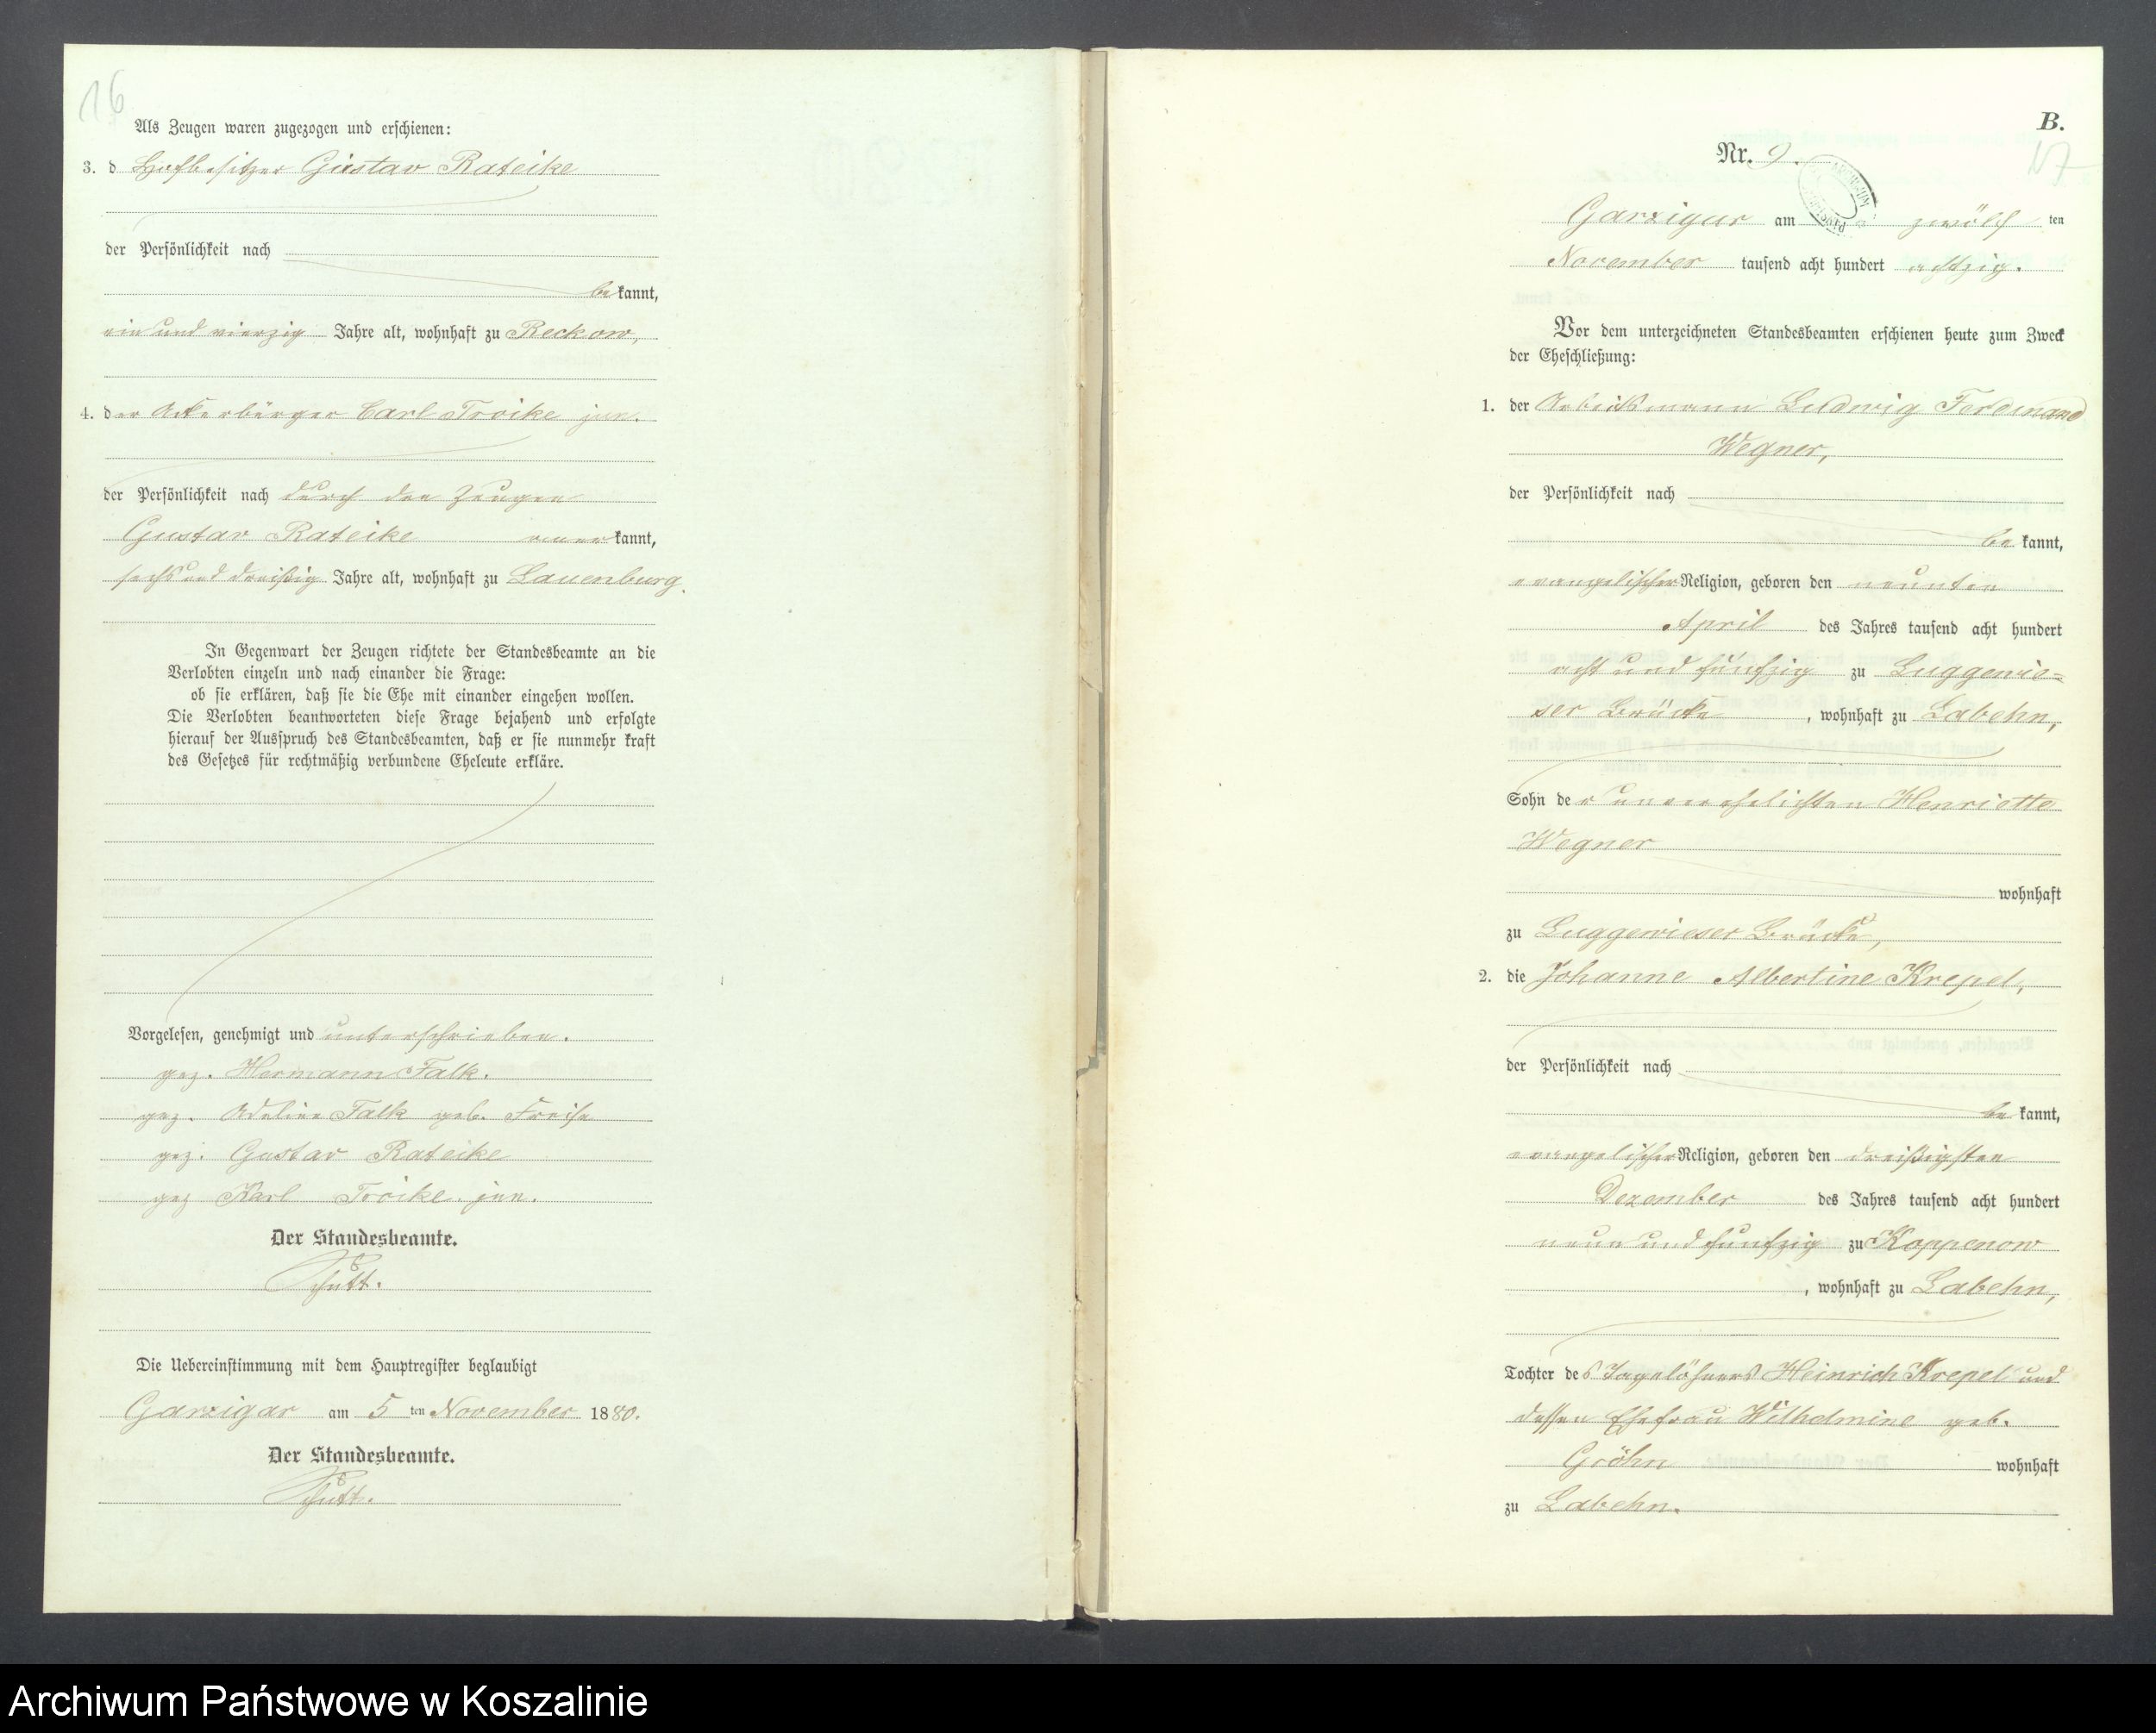 16
Als Zeugen waren zugezogen und erschienen:
3. d Hofbesitzer Gustav Rateike
der Persönlichkeit nach
bekannt,
ein und vierzig Jahre alt, wohnhaft zu Reckow,
4. der Ackerbürger Carl Troike jun.
der Persönlichkeit nach durch den Zeugen
Gustav Rateike anerkannt,
sechs und dreißig Jahre alt, wohnhaft zu Lauenburg.
In Gegenwart der Zeugen richtete der Standesbeamte an die
Verlobten einzeln und nach einander die Frage:
ob sie erklären, daß sie die Ehe mit einander eingehen wollen.
Die Verlobten beantworteten diese Frage bejahend und erfolgte
hierauf der Ausspruch des Standesbeamten, daß er sie nunmehr kraft
des Gesetzes für rechtmäßig verbundene Eheleute erkläre.
Vorgelesen, genehmigt und unterschrieben.
gez. Hermann Falk.
gez. Adeline Falk geb. Freise
gez. Gustav Rateike
gez Karl Troike jun.
Der Standesbeamte.
Schütt.
Die Uebereinstimmung mit dem Hauptregister beglaubigt
Garzigar am 5 ten November 1880.
Der Standesbeamte.
Schütt.
B.
17
Nr. 9.
Garzigar am zwölf ten
November tausend acht hundert achtzig.
Vor dem unterzeichneten Standesbeamten erschienen heute zum Zweck
der Eheschließung:
1. der Arbeitsmann Ludwig Ferdinand
Wegner,
der Persönlichkeit nach
be kannt,
evangelischer Religion, geboren den neunten
April des Jahres tausend acht hundert
acht und fünfzig zu Luggewie-
ser Brücke, wohnhaft zu Labehn,
Sohn der unverehelichten Henriette
Wegner
wohnhaft
zu Luggewieser Brücke,
2. die Johanne Albertine Krepel,
der Persönlichkeit nach
be kannt,
evangelischer Religion, geboren den dreißigsten
Dezember des Jahres tausend acht hundert
neun und fünfzig zu Koppenow
, wohnhaft zu Labehn,
Tochter des Tagelöhners Heinrich Krepel und
dessen Ehefrau Wilhelmine geb.
Gröhn wohnhaft
zu Labehn.
Archiwum Państwowe w Koszalinie